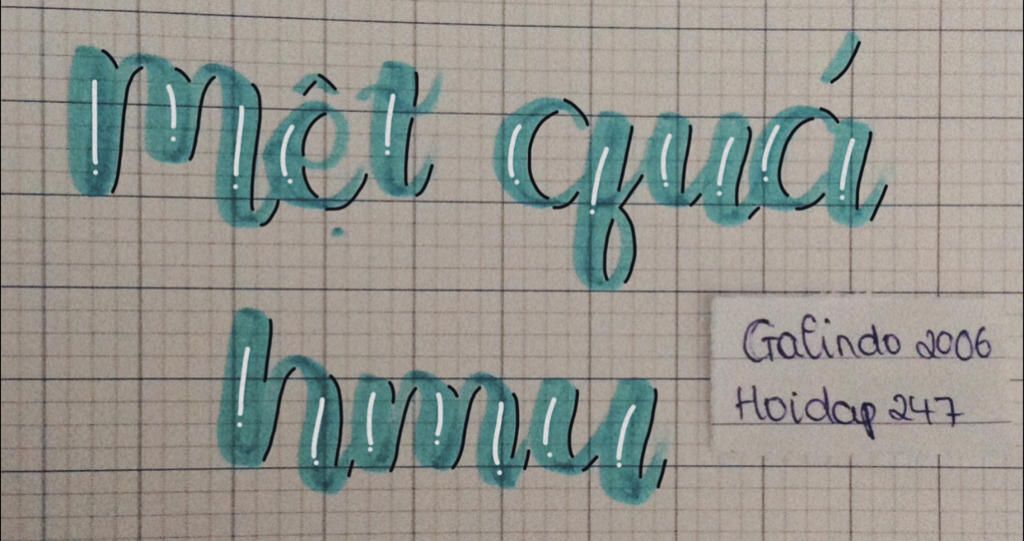 mệt quá
hmu
Galindo 2006
Hoidap 247